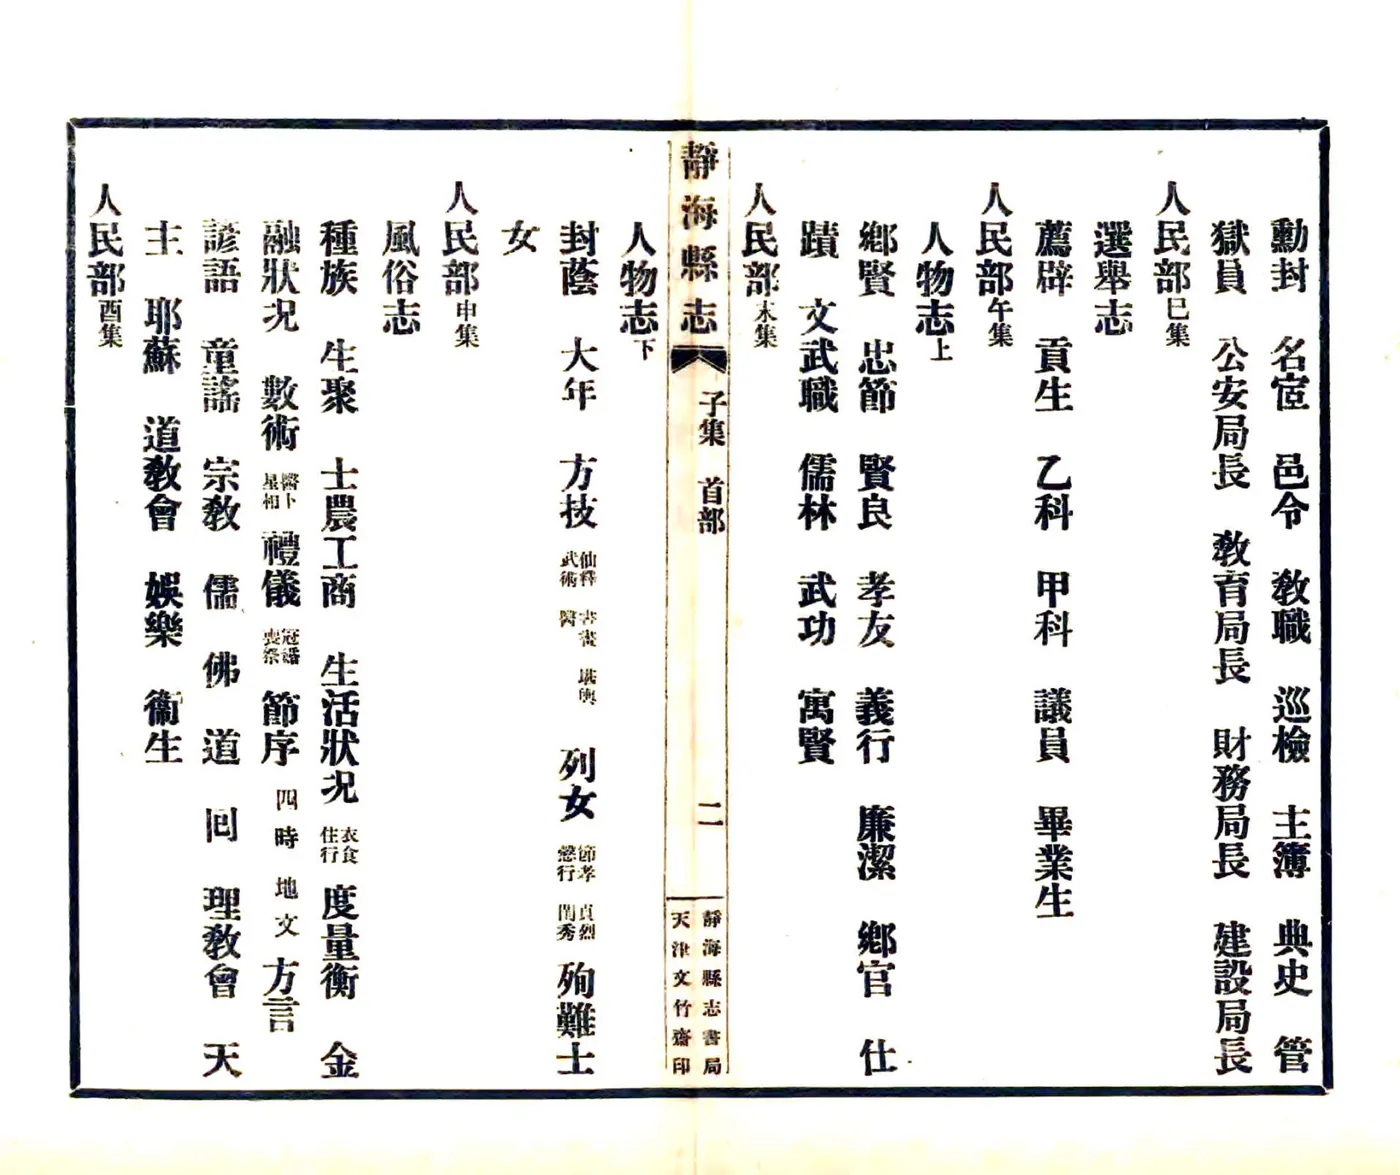 勳封　名宦　邑令　敎職　巡檢　主簿　典史　管
獄員　公安局長　敎育局長　財務局長　建設局長
人民部巳集
選舉志
薦辟　貢生　乙科　甲科　議員　畢業生
人民部午集
人物志上
鄉賢　忠節　賢良　孝友　義行　廉潔　鄉官　仕
蹟　文武職　儒林　武功　寓賢
人民部未集
靜海縣志　子集　首部　二　靜海縣志書局　天津文竹齋印
人物志下
封蔭　大年　方技　仙釋　書畫　堪輿　武術　醫　列女　節孝　貞烈　懿行　閨秀　殉難士
女
人民部申集
風俗志
種族　生聚　士農工商　生活狀況　衣食住行　度量衡　金
融狀況　數術　醫卜星相　禮儀　冠婚喪祭　節序　四時　地文　方言
諺語　童謠　宗敎　儒　佛　道　回　理敎會　天
主　耶蘇　道敎會　娛樂　衞生
人民部酉集